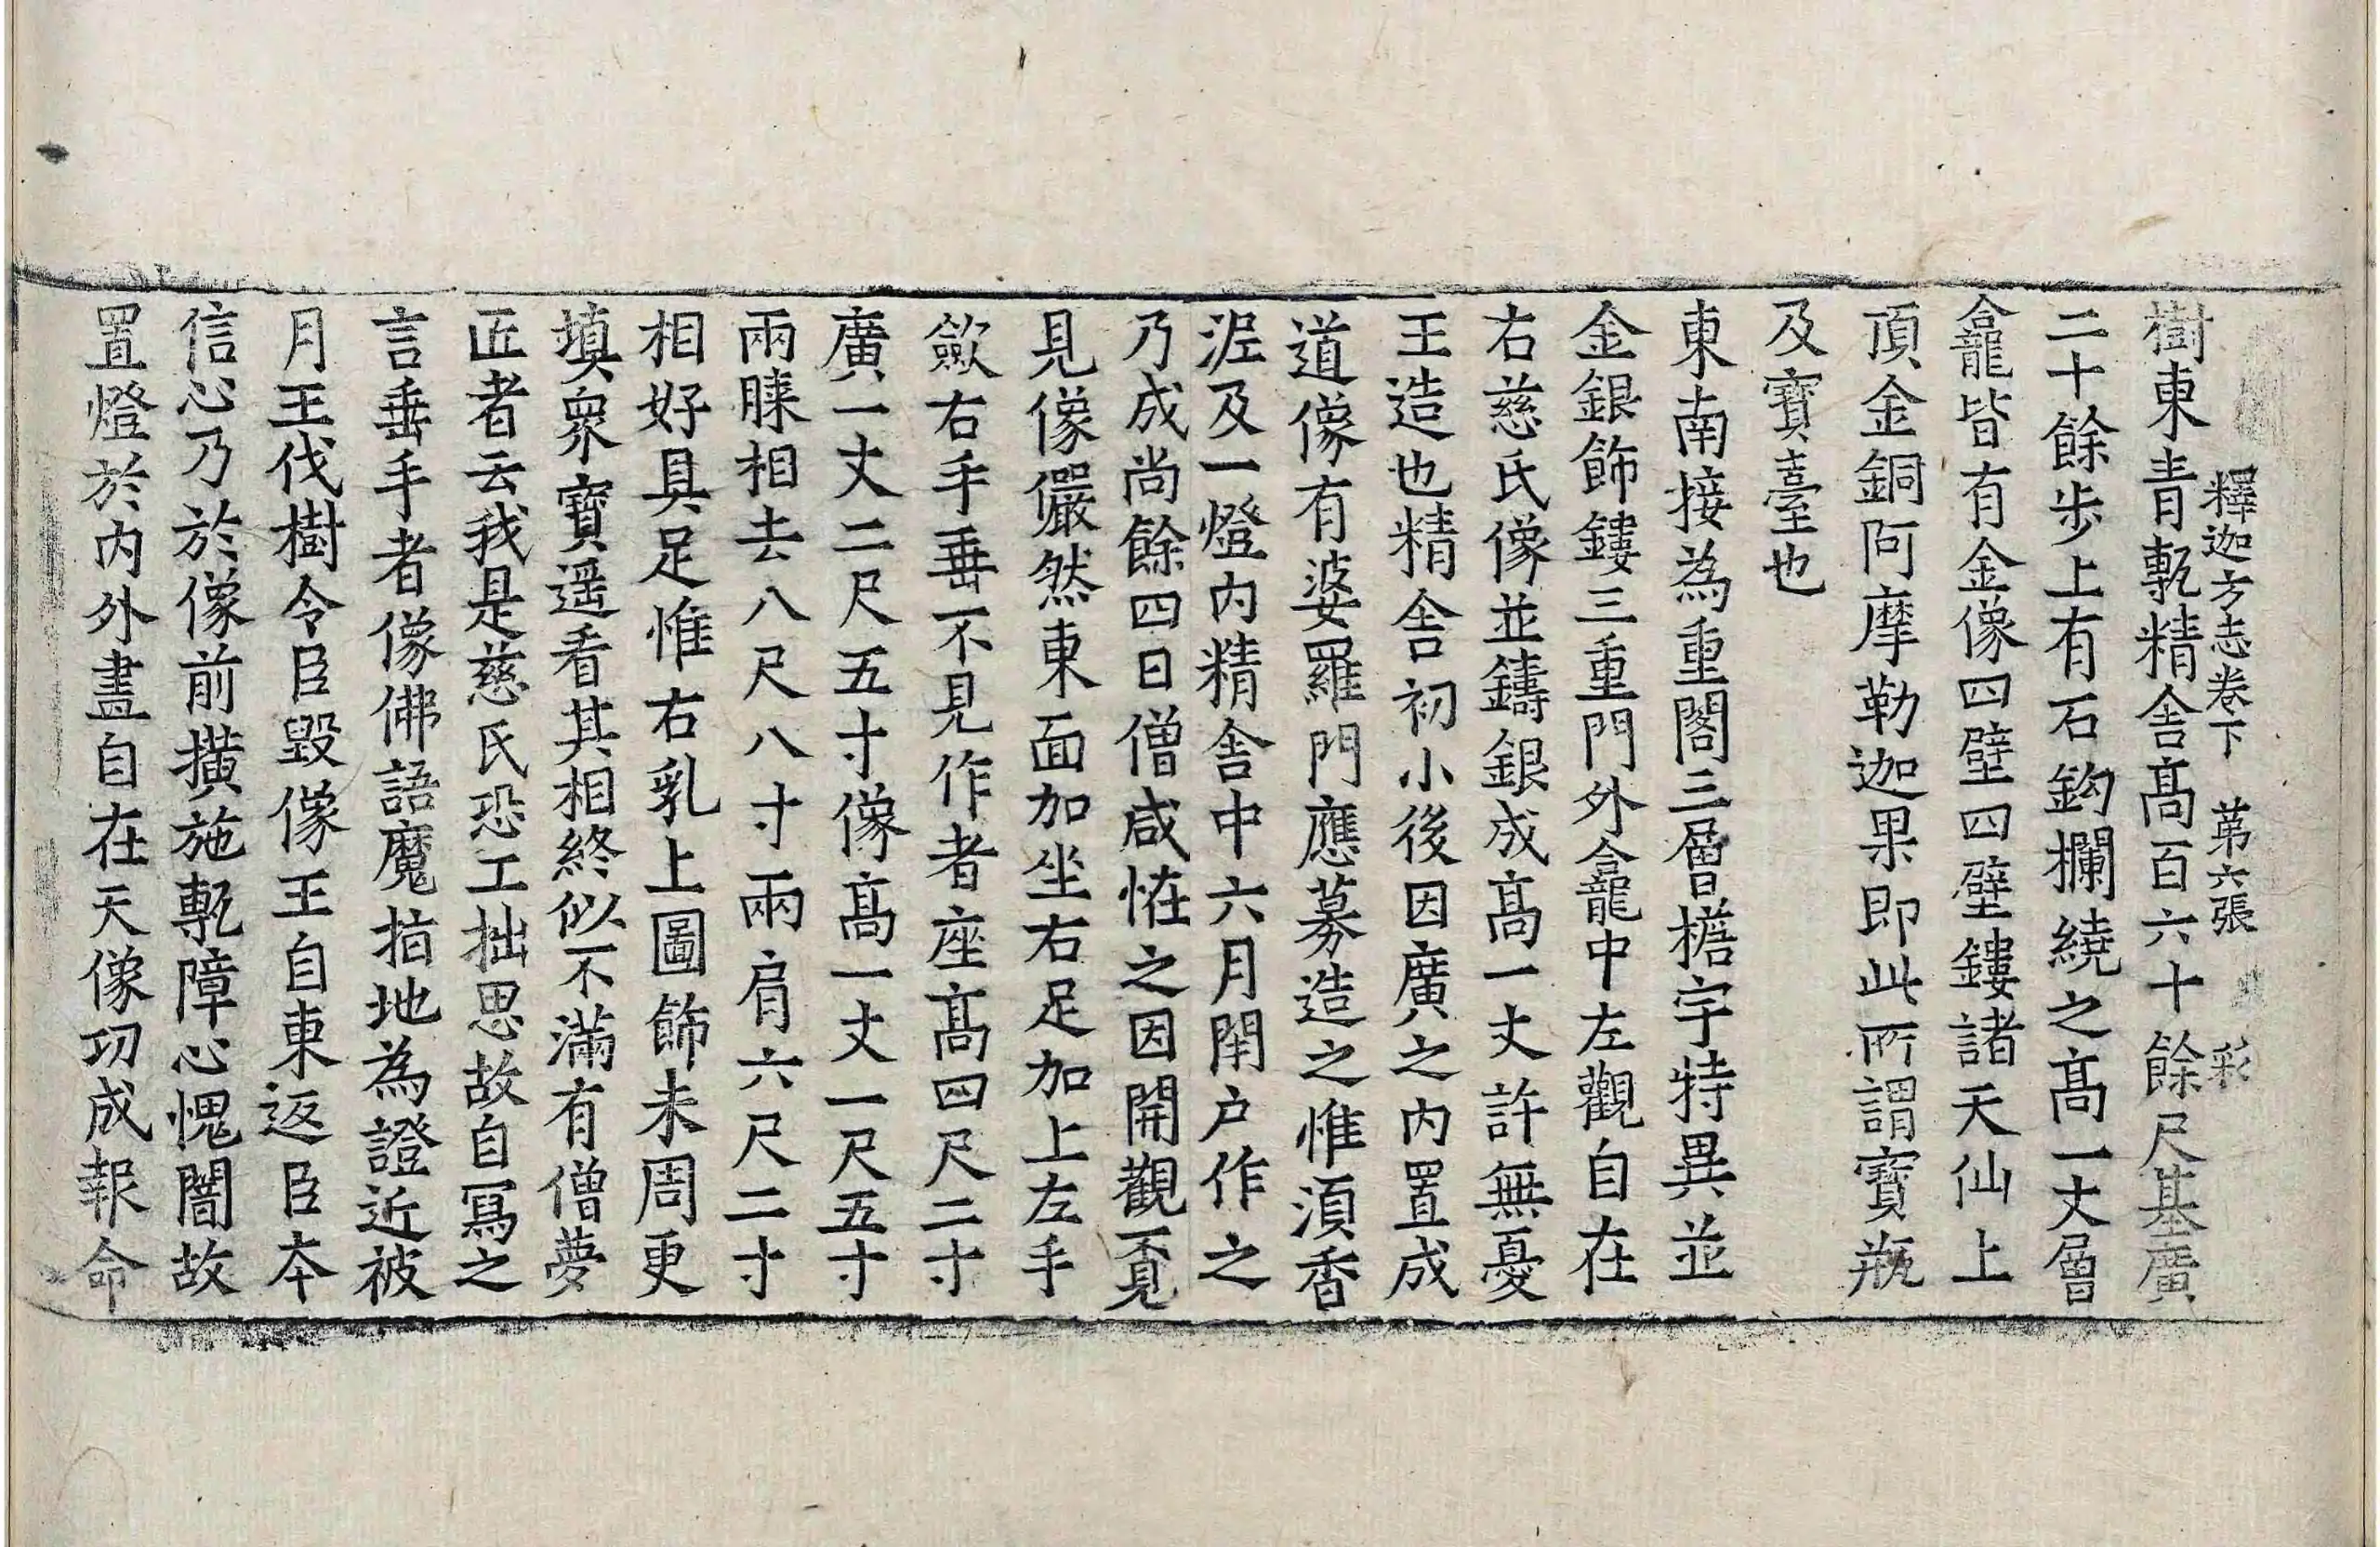 釋迦方志卷下 第六張 彩
樹東青甎精舍髙百六十餘尺基廣
二十餘步上有石鈎欄繞之髙一丈層
龕皆有金像四壁四壁鏤諸天仙上
頂金銅阿摩勒迦果即此所謂寶瓶
及寶臺也
東南接為重閣三層檐宇特異並
金銀飾鏤三重門外龕中左觀自在
右慈氏像並鑄銀成髙一丈許無憂
王造也精舍初小後因廣之内置成
道像有婆羅門應募造之惟湏香
泥及一燈内精舍中六月閉户作之
乃成尚餘四日僧咸恠之因開觀覔
見像儼然東面加坐右足加上左手
歛右手垂不見作者座髙四尺二寸
廣一丈二尺五寸像髙一丈一尺五寸
兩膝相去八尺八寸兩肩六尺二寸
相好具足惟右乳上圖飾未周更
填衆寶遥看其相終似不滿有僧夢
匠者云我是慈氏恐工拙思故自冩之
言垂手者像佛語魔指地為證近被
月王伐樹令臣毀像王自東返臣本
信心乃於像前撗施甎障心愧闇故
置燈於内外畫自在天像功成報命